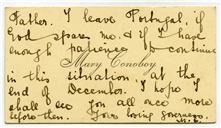 Father. I leave Portugal, if
God spares me. & if I have
enough patience to continue
Mary Conoboy
in this situation, at the
end of December. I hope I
shall see you all once more
before then. Your loving governess
M. C.